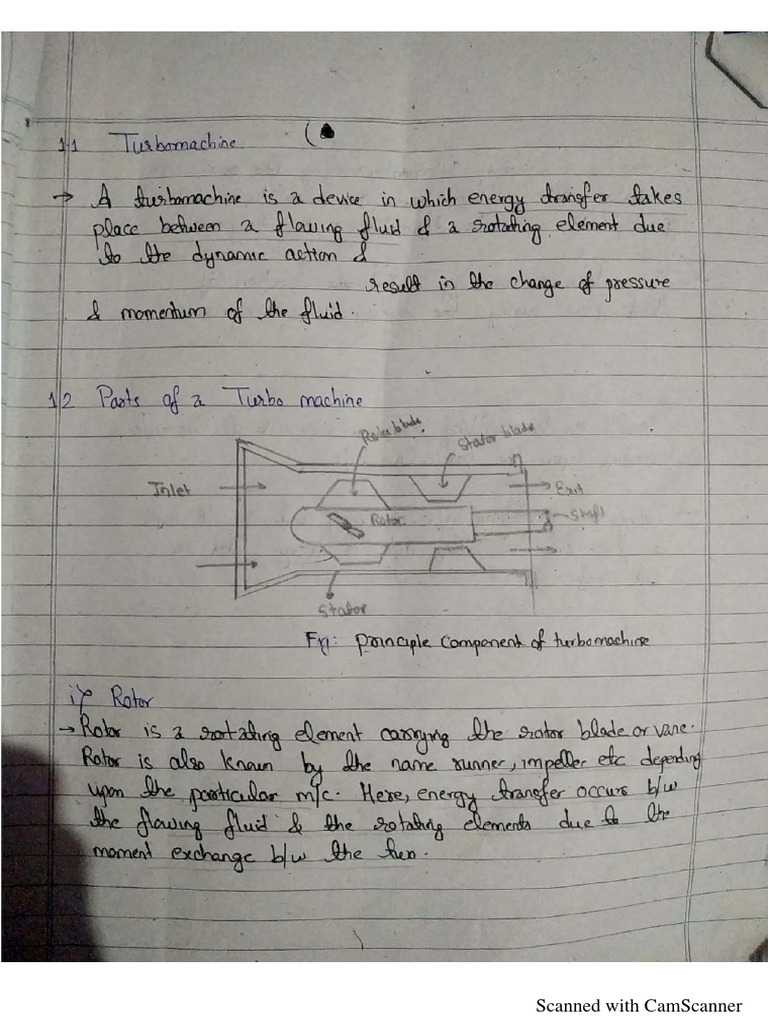 1.1 Turbomachine
→ A turbomachine is a device in which energy transfer takes
place between a flowing fluid & a rotating element due
to the dynamic action &
result in the change of pressure
& momentum of the fluid.
1.2 Parts of a Turbo machine
Rotor blade
Stator blade
Inlet
Exit
Rotor
Shaft
Stator
Fig: Principle component of turbomachine
i) Rotor
→ Rotor is a rotating element carrying the rotor blade or vane.
Rotor is also known by the name runner, impeller etc depending
upon the particular m/c. Here, energy transfer occurs b/w
the flowing fluid & the rotating elements due to the
moment exchange b/w the two.
Scanned with CamScanner